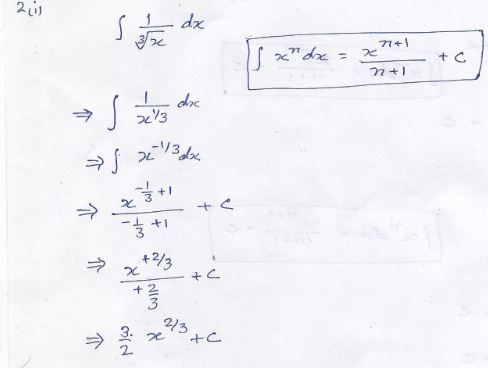 2(i)
∫ 1/∛x dx
∫ xⁿ dx = xⁿ⁺¹/(n+1) + c
⇒ ∫ 1/x^(1/3) dx
⇒ ∫ x^(-1/3) dx
⇒ x^(-1/3 +1)/(-1/3 +1) + c
⇒ x^(+2/3)/(+2/3) + c
⇒ 3/2 x^(2/3) + c